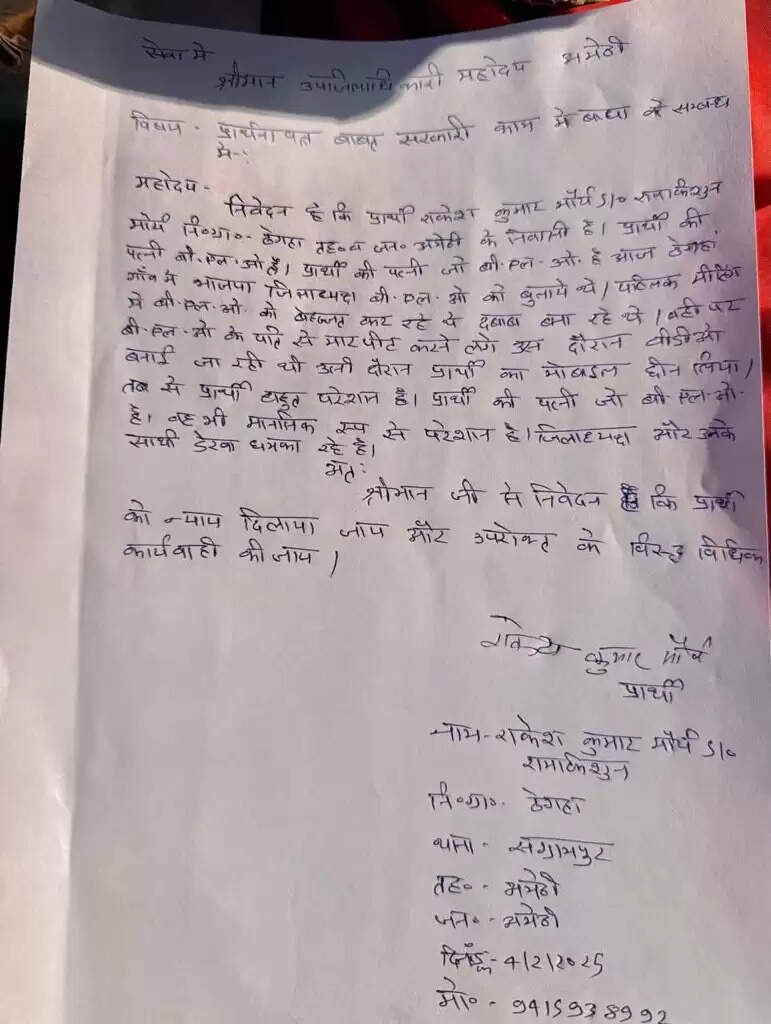 सेवा मे
श्रीमान उपजिलाधिकारी महोदय अमेठी
विषय - प्रार्थनापत्र बाबत् सरकारी काम मे बाधा के सम्बंध
मे-:
महोदय -
निवेदन है कि प्रार्थी राकेश कुमार मौर्य S/० रामकिशुन
मौर्य नि०ग्रा०- ठेगहा तह० व जन० अमेठी के निवासी है। प्रार्थी की
पत्नी बी॰एल॰ओ है। प्रार्थी की पत्नी जो बी॰एल॰ओ॰ है आज ठेगहा
गाँव मे भाजपा जिलाध्यक्ष बी॰एल॰ओ को बुलाये थे। पब्लिक मीटिंग
मे बी॰एल॰ओ॰ को बेइज्जत कर रहे थे दबाब बना रहे थे। वही पर
बी॰एल॰ओ के पति से मारपीट करने लगे उस दौरान वीडीओ
बनाई जा रही थी उसी दौरान प्रार्थी का मोबाइल छीन लिया।
तब से प्रार्थी बहुत परेशान है। प्रार्थी की पत्नी जो बी॰एल॰ओ॰
है। वह भी मानसिक रूप से परेशान है। जिलाध्यक्ष और उनके
साथी डेरवा धमका रहे है।
अतः
श्रीमान जी से निवेदन है कि प्रार्थी
को न्याय दिलाया जाय और उपरोक्त के विरुद्ध विधिक
कार्यवाही की जाय।
राकेश कुमार मौर्य
प्रार्थी
नाम- राकेश कुमार मौर्य S/०
रामकिशुन
नि०ग्रा०- ठेगहा
थाना - संग्रामपुर
तह० - अमेठी
जन० - अमेठी
दिनाँक- 4/2/2025
मो० - 9415938992